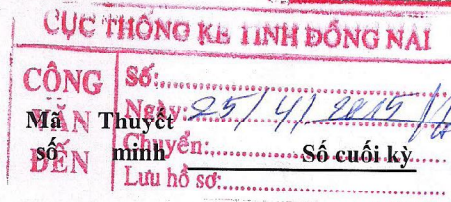 CỤC THỐNG KÊ TỈNH ĐỒNG NAI
CÔNG VĂN ĐẾN
Số:
Ngày: 25/4/2015
Chuyển:
Lưu hồ sơ:
Mã số
Thuyết minh
Số cuối kỳ